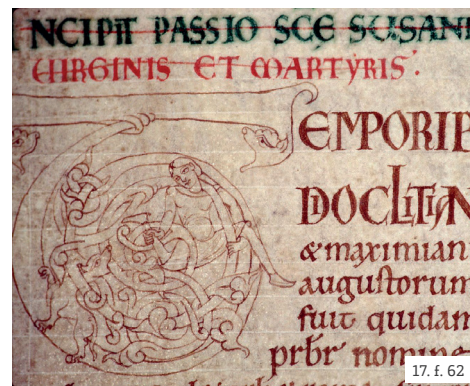 INCIPIT PASSIO SCĘ SUSANN
UIRGINIS ET MARTYRIS.
TEMPORIB
DIOCLITIAN
& maximian
augustorum
fuit quidam
prbr nomine
17. f. 62